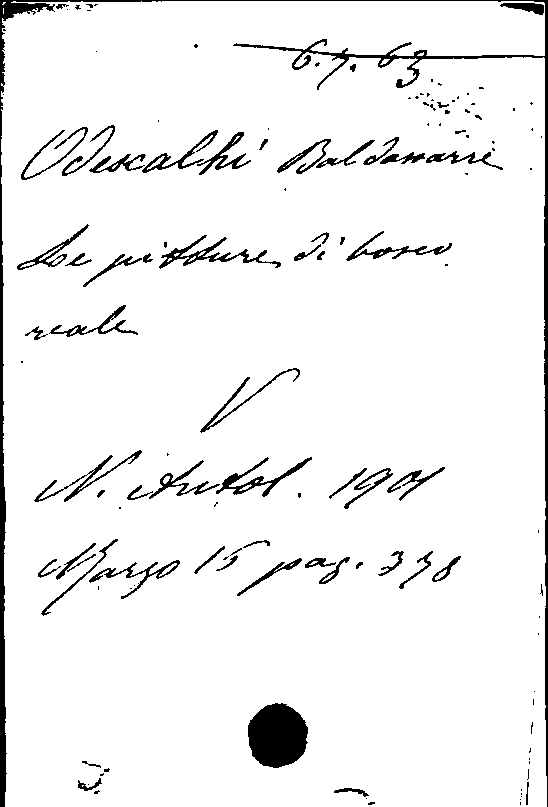 6.7.63
Odescalhi Baldassarre
Le pitture di bosco
reale
V
N. Antol. 1901
Marzo 15 pag. 378